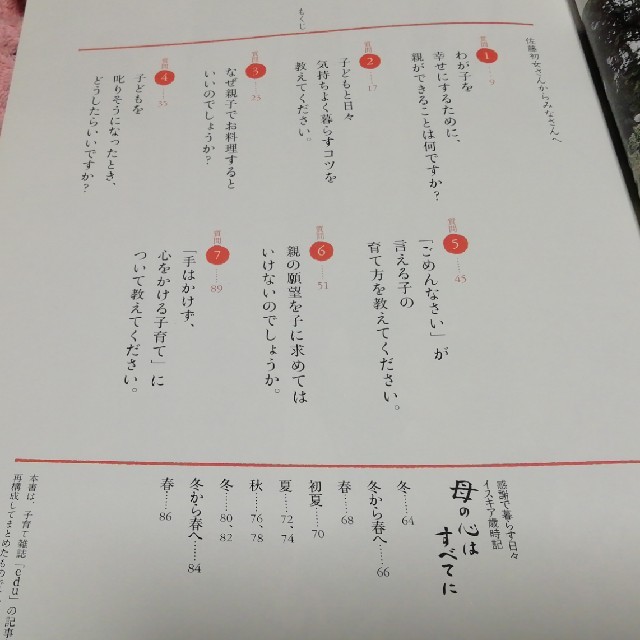 もくじ
佐藤初女さんからみなさんへ
質問1……9
わが子を
幸せにするために、
親ができることは何ですか?
質問2……17
子どもと日々
気持ちよく暮らすコツを
教えてください。
質問3……25
なぜ親子でお料理すると
いいのでしょうか?
質問4……35
子どもを
叱りそうになったとき、
どうしたらいいですか?
質問5……45
「ごめんなさい」が
言える子の
育て方を教えてください。
質問6……51
親の願望を子に求めては
いけないのでしょうか。
質問7……89
「手はかけず、
心をかける子育て」に
ついて教えてください。
感謝で暮らす日々
イスキア歳時記
母の心は
すべてに
冬……64
冬から春へ……66
春……68
初夏……70
夏……72、74
秋……76、78
冬……80、82
冬から春へ……84
春……86
本書は、子育て雑誌「edu」の記事
再構成してまとめたもので